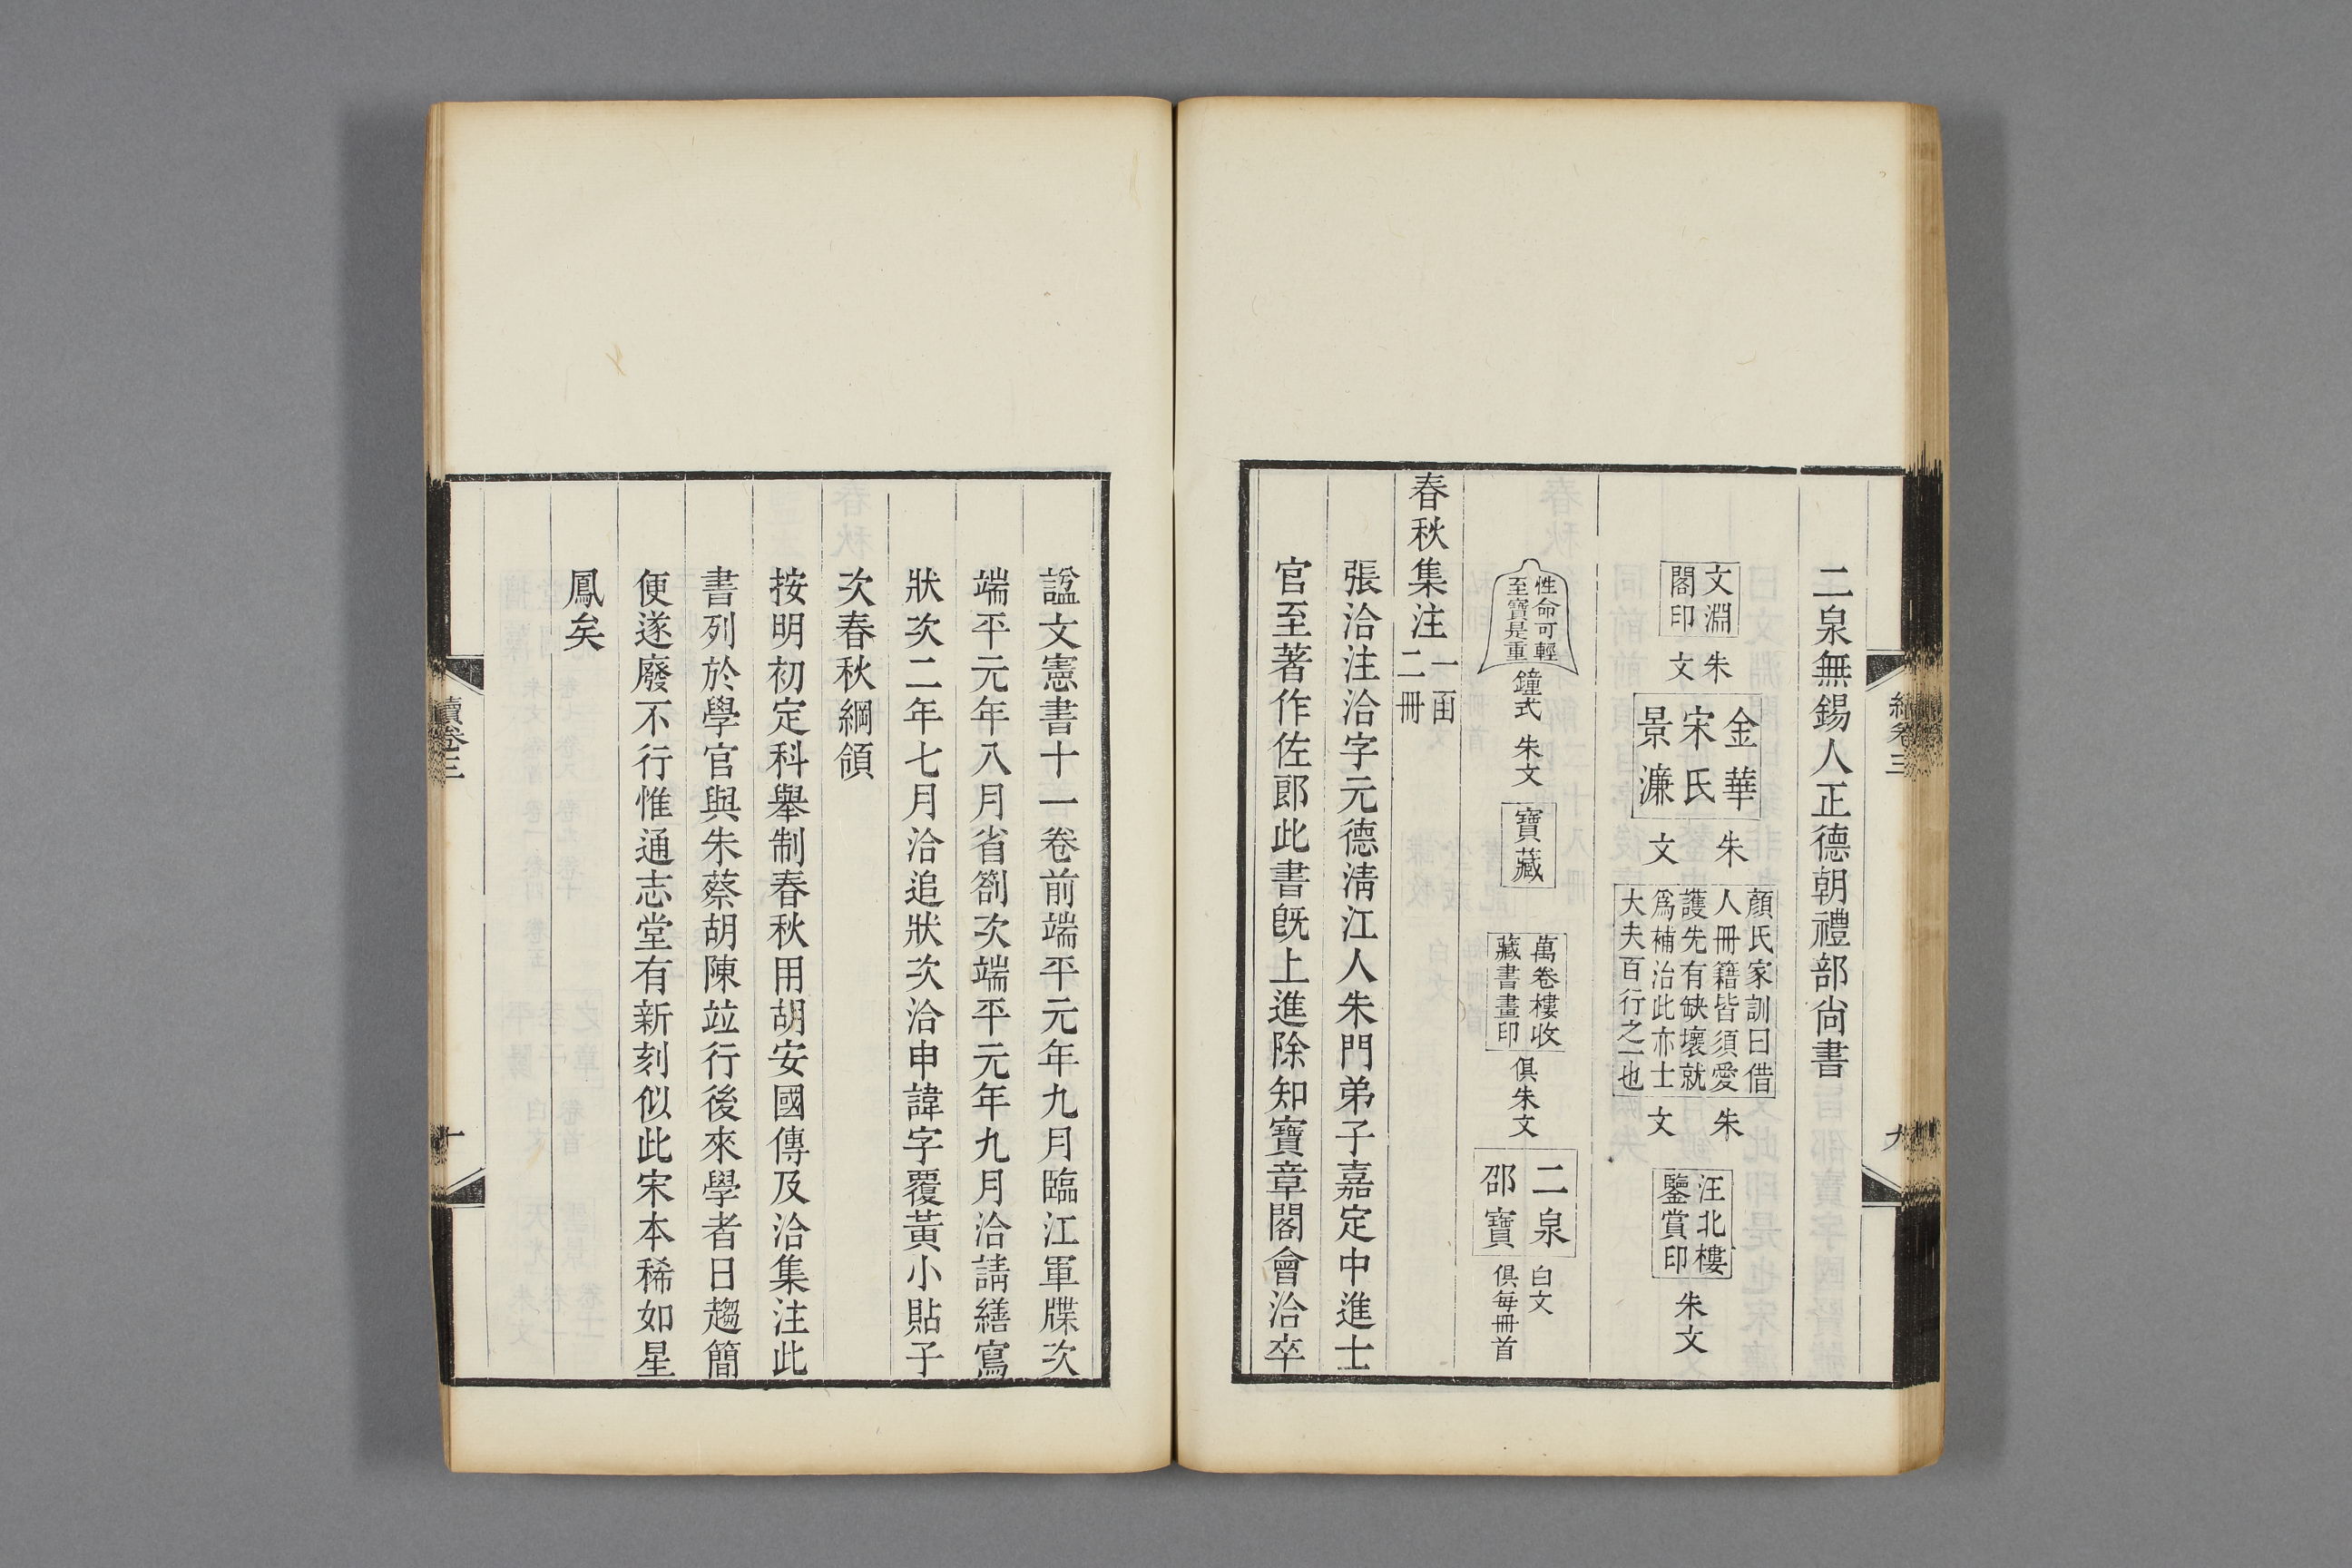 續卷三
九
二泉無錫人正德朝禮部尙書
文淵
閣印
朱
文
金華
宋氏
景濂
朱
文
顏氏家訓曰借
人冊籍皆須愛
護先有缺壞就
爲補治此亦士
大夫百行之一也
朱
文
汪北樓
鑒賞印
朱文
性命可輕
至寶是重
鐘式
朱文
寶藏
萬卷樓收
藏書畫印
俱朱文
二泉
邵寶
白文
俱每冊首
春秋集注
一函
二冊
張洽注洽字元德淸江人朱門弟子嘉定中進士
官至著作佐郎此書旣上進除知寶章閣會洽卒
諡文憲書十一卷前端平元年九月臨江軍牒次
端平元年八月省劄次端平元年九月洽請繕寫
狀次二年七月洽追狀次洽申諱字覆黃小貼子
次春秋綱領
按明初定科舉制春秋用胡安國傳及洽集注此
書列於學官與朱蔡胡陳竝行後來學者日趨簡
便遂廢不行惟通志堂有新刻似此宋本稀如星
鳳矣
續卷三
十